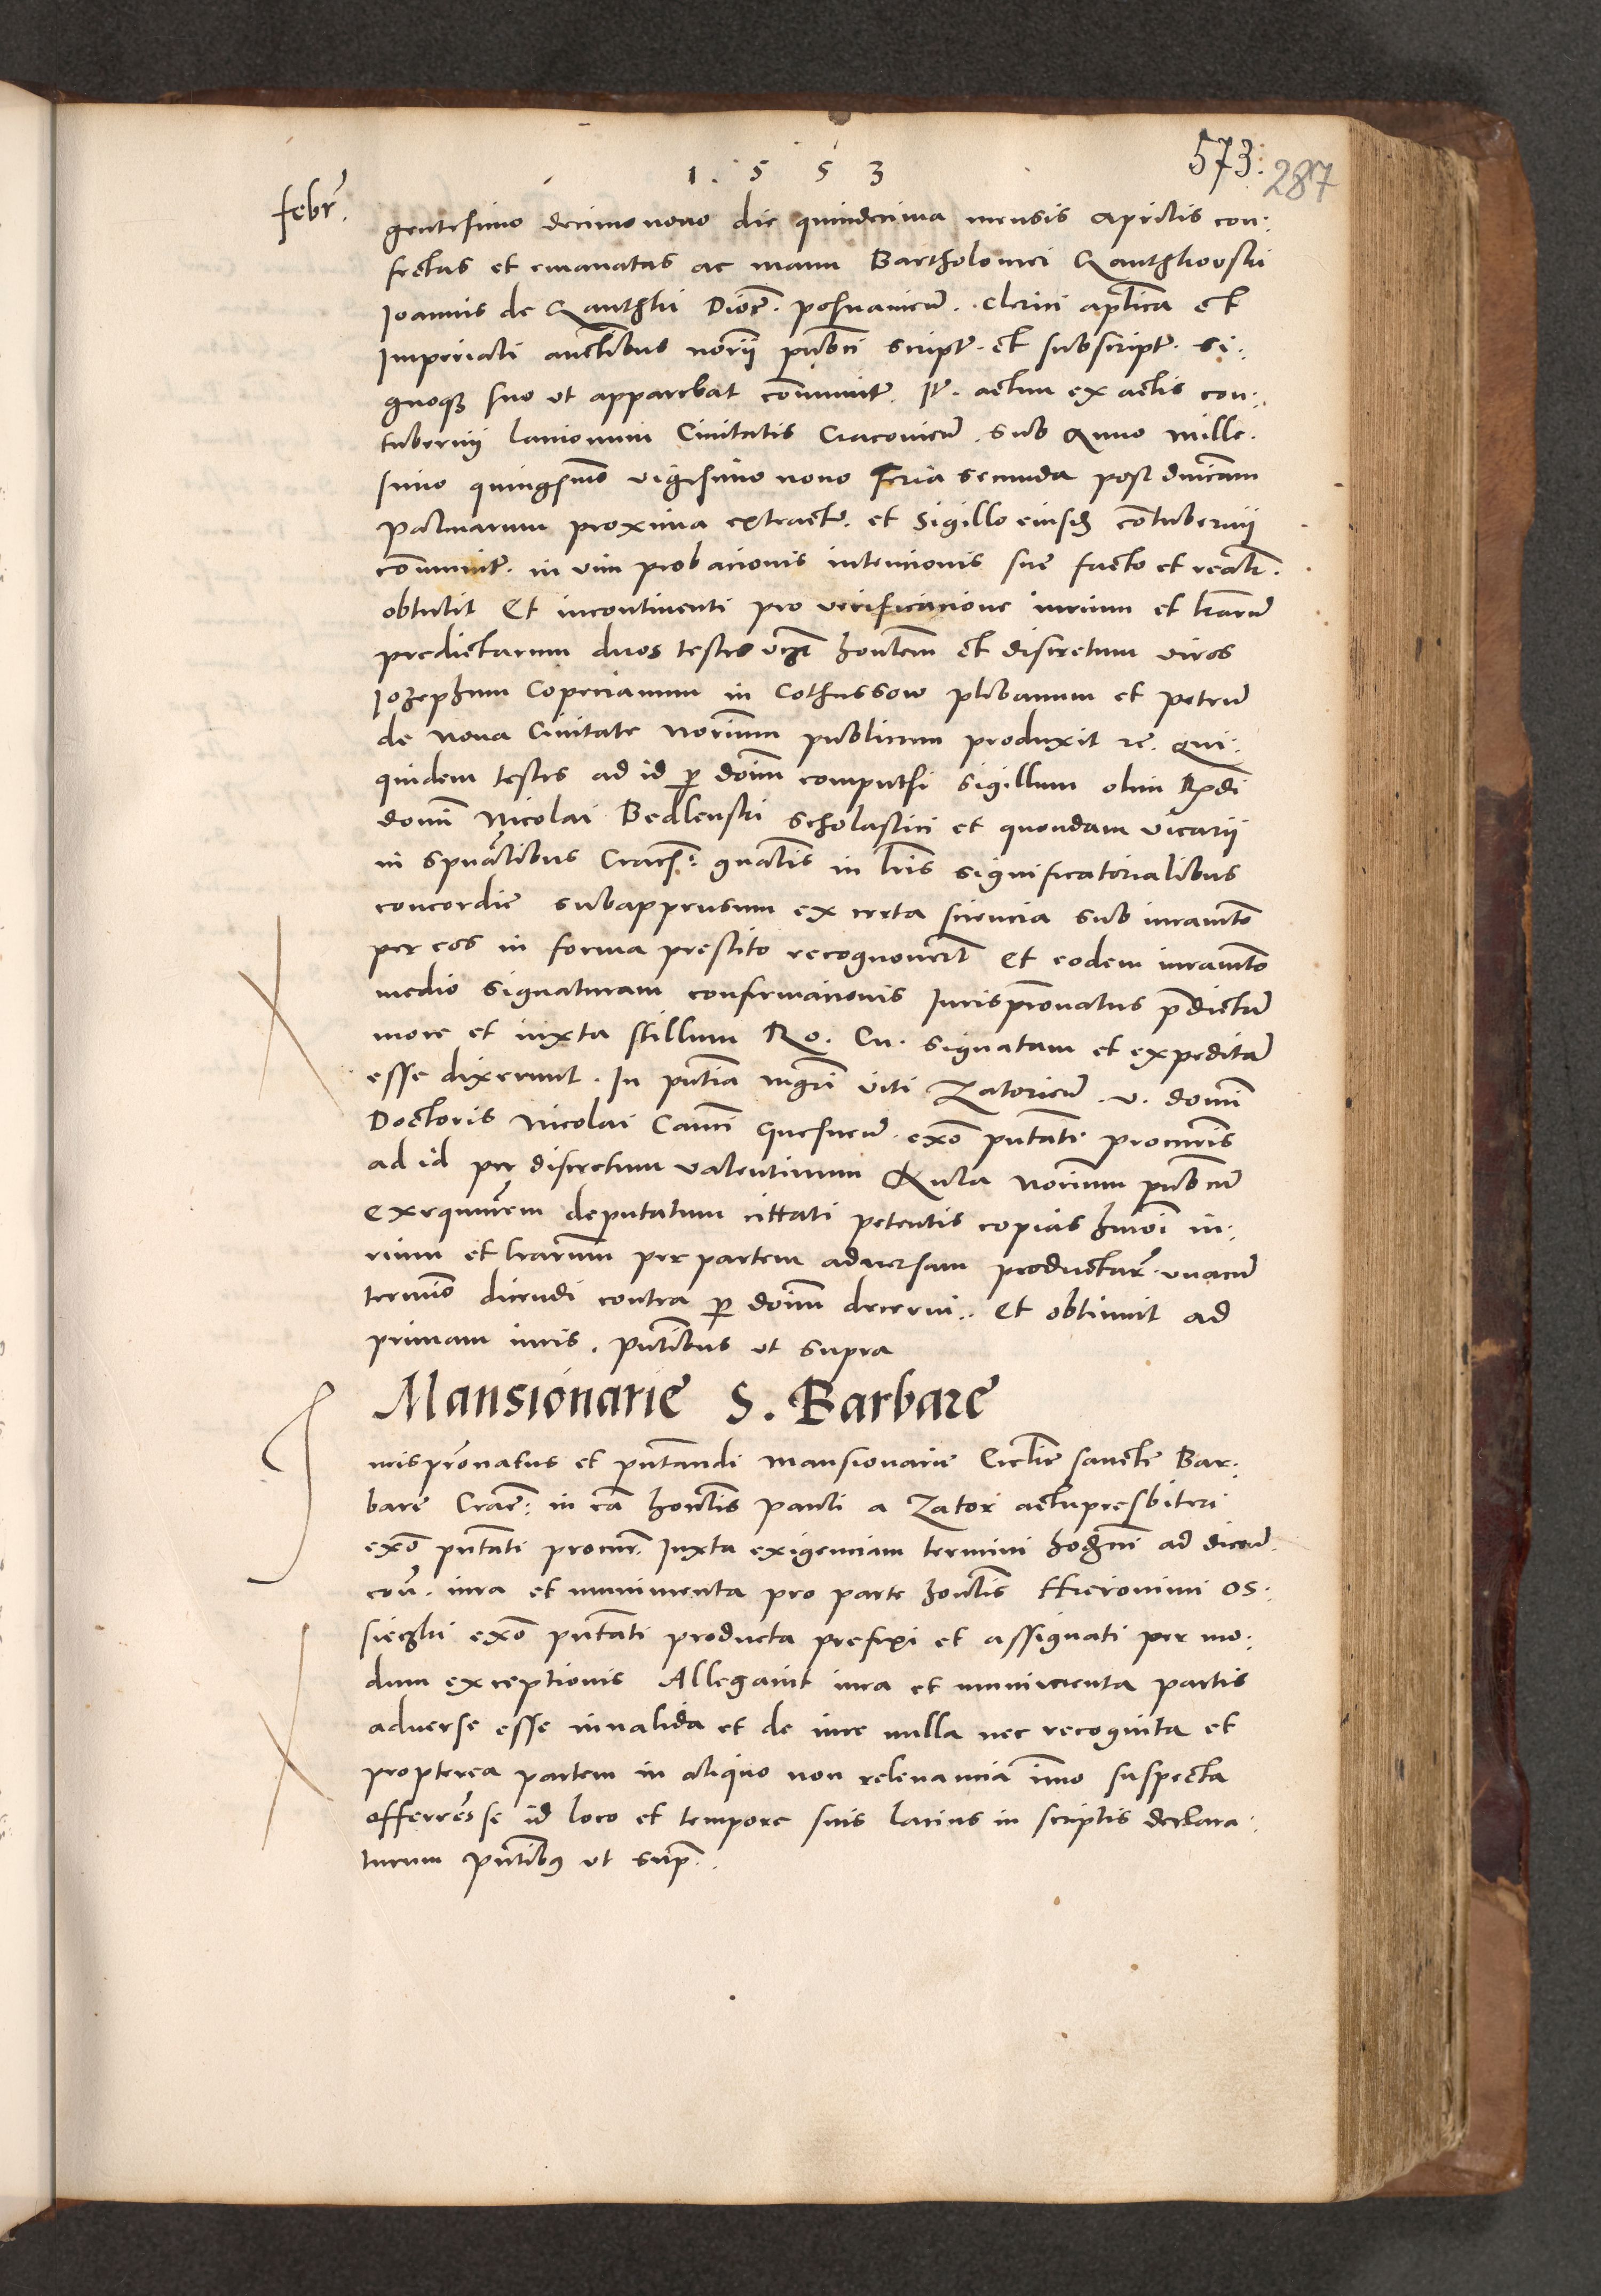 1 . 5 5 3
573.
287
Febr̃.
gentesimo decimonono die quindecima mensis Aprilis con:
fectas et emanatas ac manu Bartholomei Qanthkovski
Ioannis de Qanthki Dioc̃. posnanieñ. clerici aplica et
Imperiali auctibus norii publici script̃. et subscript̃. Si:
gnoq3 suo ut apparebat communit̃. It̃. actum ex actis con:
tubernij lanionum Civitatis Cracovieñ. sub Anno mille.
simo quingsimo vigesimo nono feria secunda post dnicam
Palmarum proxima extract̃. et sigillo eiusd̃ contubernij
communit̃. in vim probacionis intencionis sue facto et realt̃.
obtulit Et incontinenti pro verificacione iurium et lrarũ
predictarum duos testes vz̃ honlem et discretum viros
Iozephum Copeciamm in Cothussow plebanum et Petrũ
de Nova Civitate Norium publicum produxit rc̃. Qui:
quidem testes ad id p̱ domm compulsi sigillum olim Rñdi
domi Nicolai Bedlenski scholastici et quondam vicarii
in spũalibus Cracoṽ: gnalis in lris significatorialibus
concordie subappensum ex certa sciencia sub iuramto
per eos in forma prestito recognoverũt Et eodem iuramto
medio signaturam confirmacionis Iurispronatus p̃dictã
more et iuxta stillum Ro. Cu. signatam et expeditã
esse dixerunt. In pntia mgri viti Zatorieñ. v. domi
Doctoris Nicolai Canci Gnesneñ. exõ pntati procuris
ad id per discretum Valentinum Kula Norium publicũ
Exequutorem deputatum cittati petentis copias hmoi iu:
rium et lrarum per partem adversam productar̃. unacũ
termio dicendi contra p̱ domm decerni. Et obtinuit ad
primam iuris. Pntibus ut supra
Mansionarie S. Barbare
Iurispronatus et pntandi mansionarie Ecclie sancte Bar:
bare Crac̃: in cã honlis Pauli a Zator actu presbiteri
exõ pntati procur̃. Iuxta exigenciam termini hodierni ad dicend̃.
coñ. iura et munimenta pro parte honlis Hieronimi Os:
sieczki exõ pntati producta prefixi et assignati per mo:
dum exceptionis Allegavit iura et munimenta partis
adverse esse invalida et de iure nulla nec recognita et
propterea partem in aliquo non relevanciã imo suspecta
offerens se id loco et tempore suis lacius in scriptis declara:
turum Pntib9 ut sup̃.